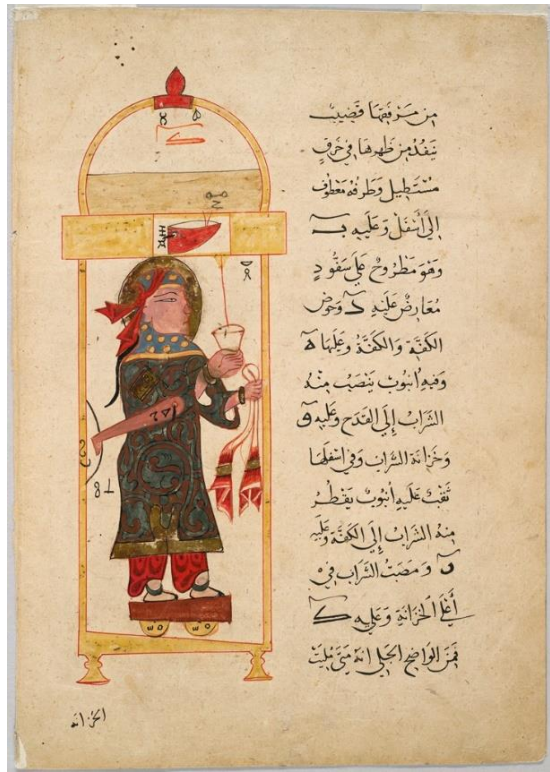 من مرفقها قضيب
ينفذ من ظهرها في خرق
مستطيل وطرفه معطوف
إلى أسفل وعليه ب
وهو مطروح على سفود
معارض عليه د وحوض
الكفة والكفة وعليها ه
وفيه انبوب ينصب منه
الشراب إلى القدح وعليه و
وخزانة الشراب وفي اسفلها
ثقب عليه أنبوب يقطر
منه الشراب إلى الكفة وعليه
ومصب الشراب في
أعلى الخزانة وعليه ك
فمن الواضح الجلي انه متى مليت
الخزانة